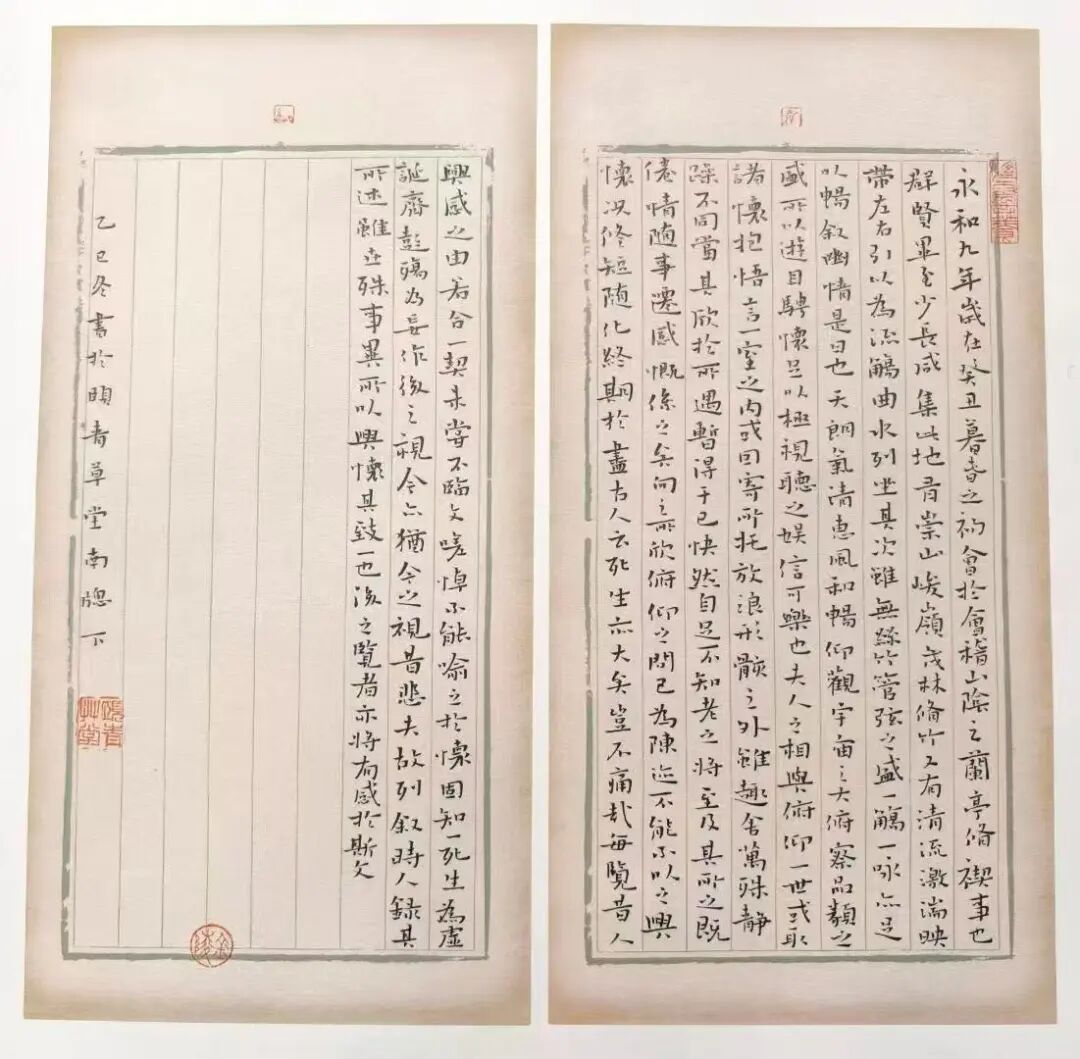 永和九年歲在癸丑暮春之初會於會稽山陰之蘭亭脩禊事也
群賢畢至少長咸集此地有崇山峻嶺茂林脩竹又有清流激湍映
帶左右引以為流觴曲水列坐其次雖無絲竹管弦之盛一觴一咏亦足
以暢叙幽情是日也天朗氣清惠風和暢仰觀宇宙之大俯察品類之
盛所以遊目騁懷足以極視聽之娛信可樂也夫人之相與俯仰一世或取
諸懷抱悟言一室之内或因寄所托放浪形骸之外雖趣舍萬殊静
躁不同當其欣於所遇暫得于己快然自足不知老之將至及其所之既
倦情隨事遷感慨係之矣向之所欣俯仰之間已為陳迹不能不以之興
懷況修短隨化終期於盡古人云死生亦大矣豈不痛哉每覽昔人
興感之由若合一契未嘗不臨文嗟悼不能喻之於懷固知一死生為虛
誕齊彭殤為妄作後之視今亦猶今之視昔悲夫故列叙時人録其
所述雖世殊事異所以興懷其致一也後之覽者亦將有感於斯文
乙巳冬書於頤青草堂南牕下
頤青草堂
金陵